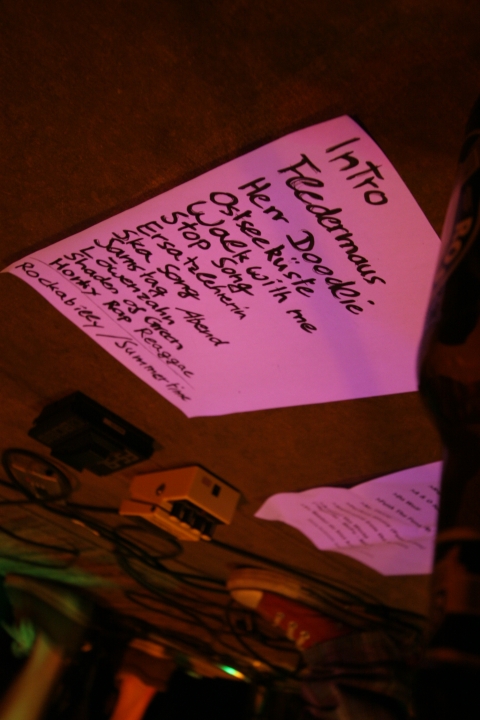 Intro
Fledermaus
Herr Döödelie
Ostseeküste
Walk with me
Stop Song
Ersatzlehrerin
Ska Song
Samstag Abend
Löwenzahn
Shades of Green
Horny Rap Reaggae
Rockabilly / Summertime